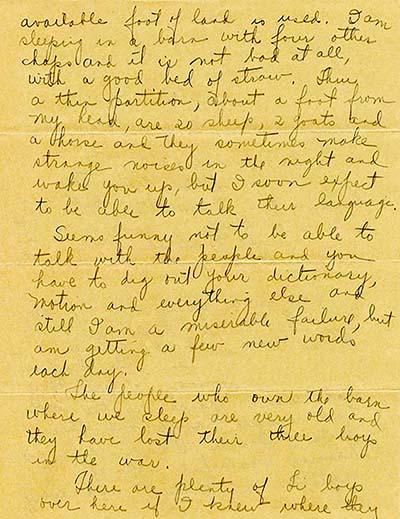 available foot of land is used. I am
sleeping in a barn with four other
chaps and it is not bad at all,
with a good bed of straw. Thru
a thin partition, about a foot from
my head, are 20 sheep, 2 goats and
a horse and they sometimes make
strange noises in the night and
wake you up, but I soon expect
to be able to talk their language.
Seems funny not to be able to
talk with the people and you
have to dig out your dictionary,
motion and everything else and
still I am a miserable failure, but
am getting a few new words
each day.
The people who own the barn
where we sleep are very old and
they have lost their three boys
in the war.
There are plenty of boys
over here if I knew where they